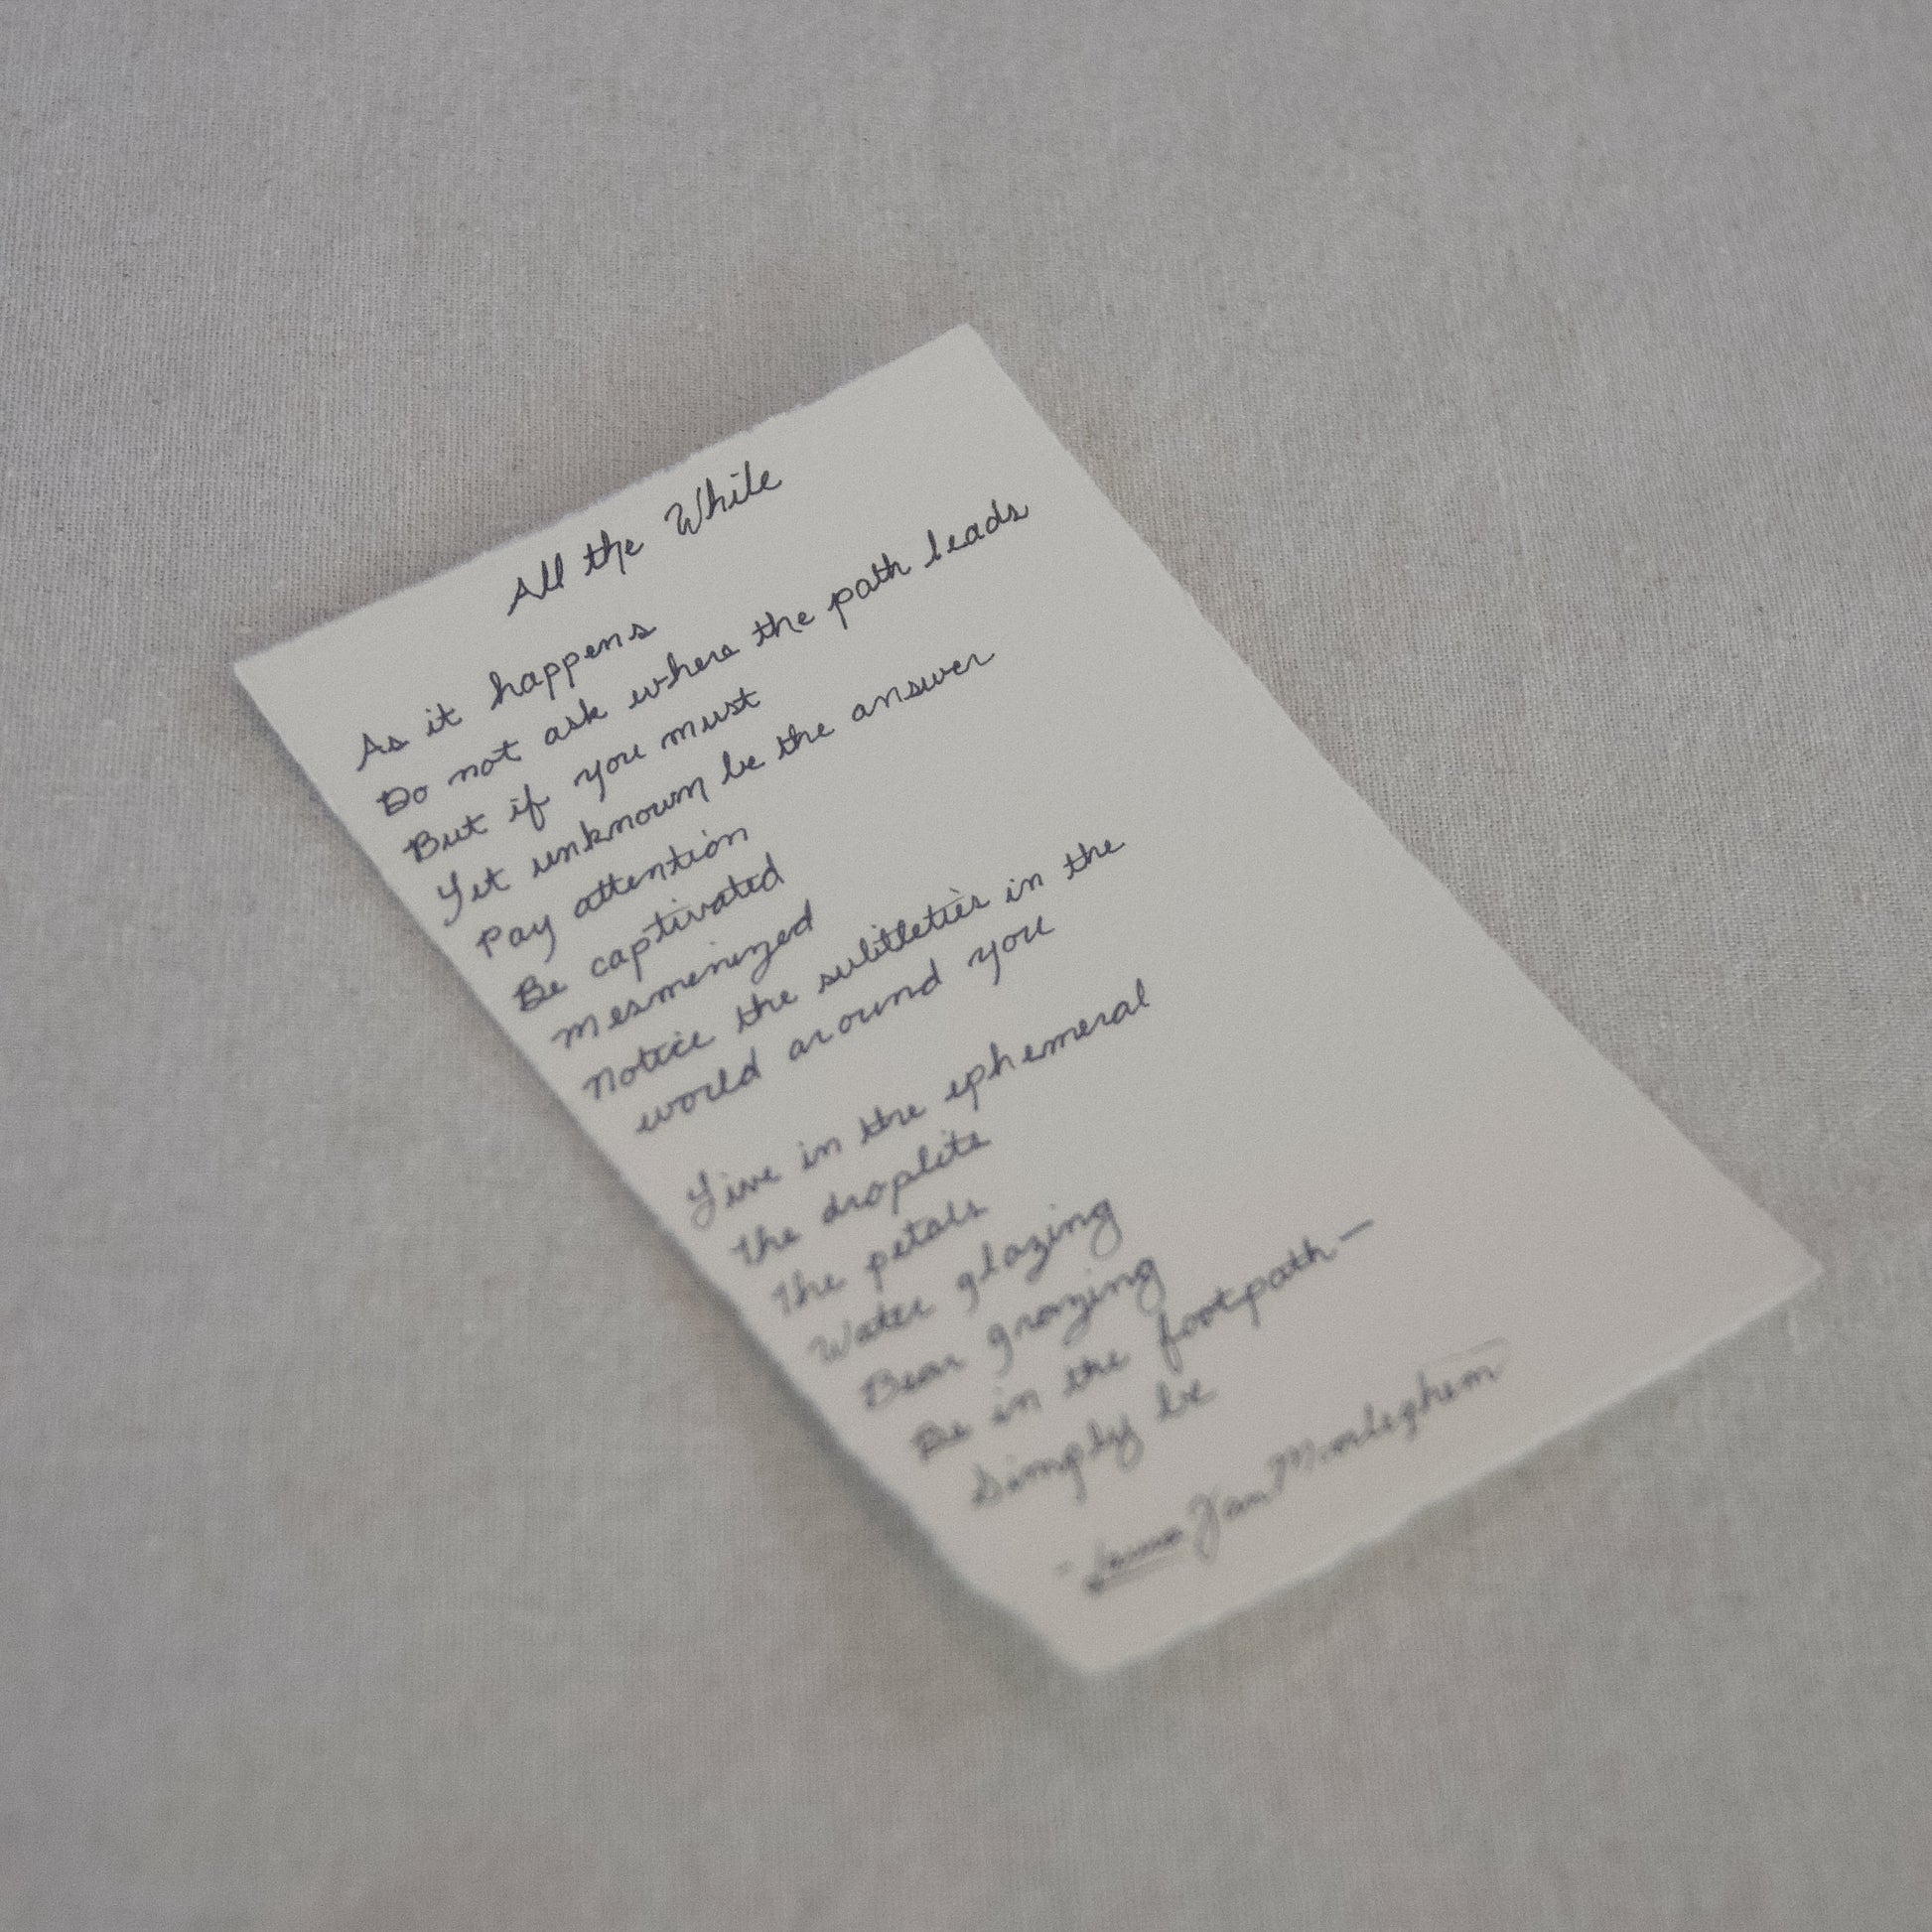 All the While
As it happens
Do not ask where the path leads
But if you must
Yet unknown be the answer
Pay attention
Be captivated
mesmerized
Notice the sublteties in the
world around you
Live in the ephemeral
The droplits
The petals
Water glazing
Bear grazing
Be in the footpath—
Simply be